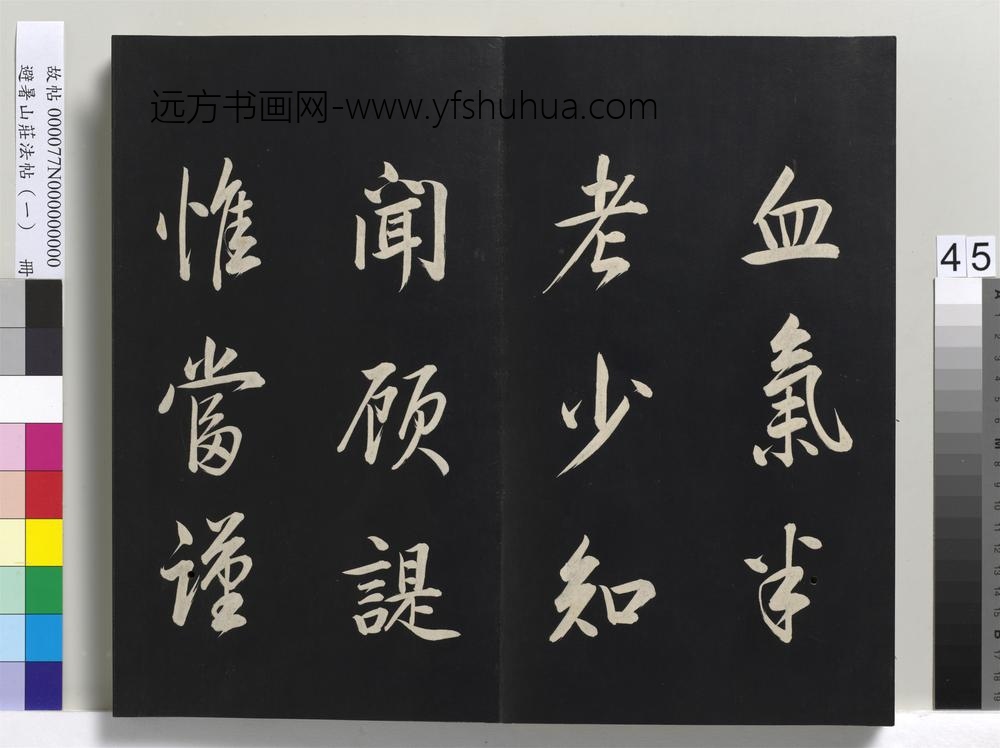 血氣半
老少知
聞顧諟
惟當謹
远方书画网-www.yfshuhua.com
故帖 000077N000000000
避暑山莊法帖（一） 冊
45